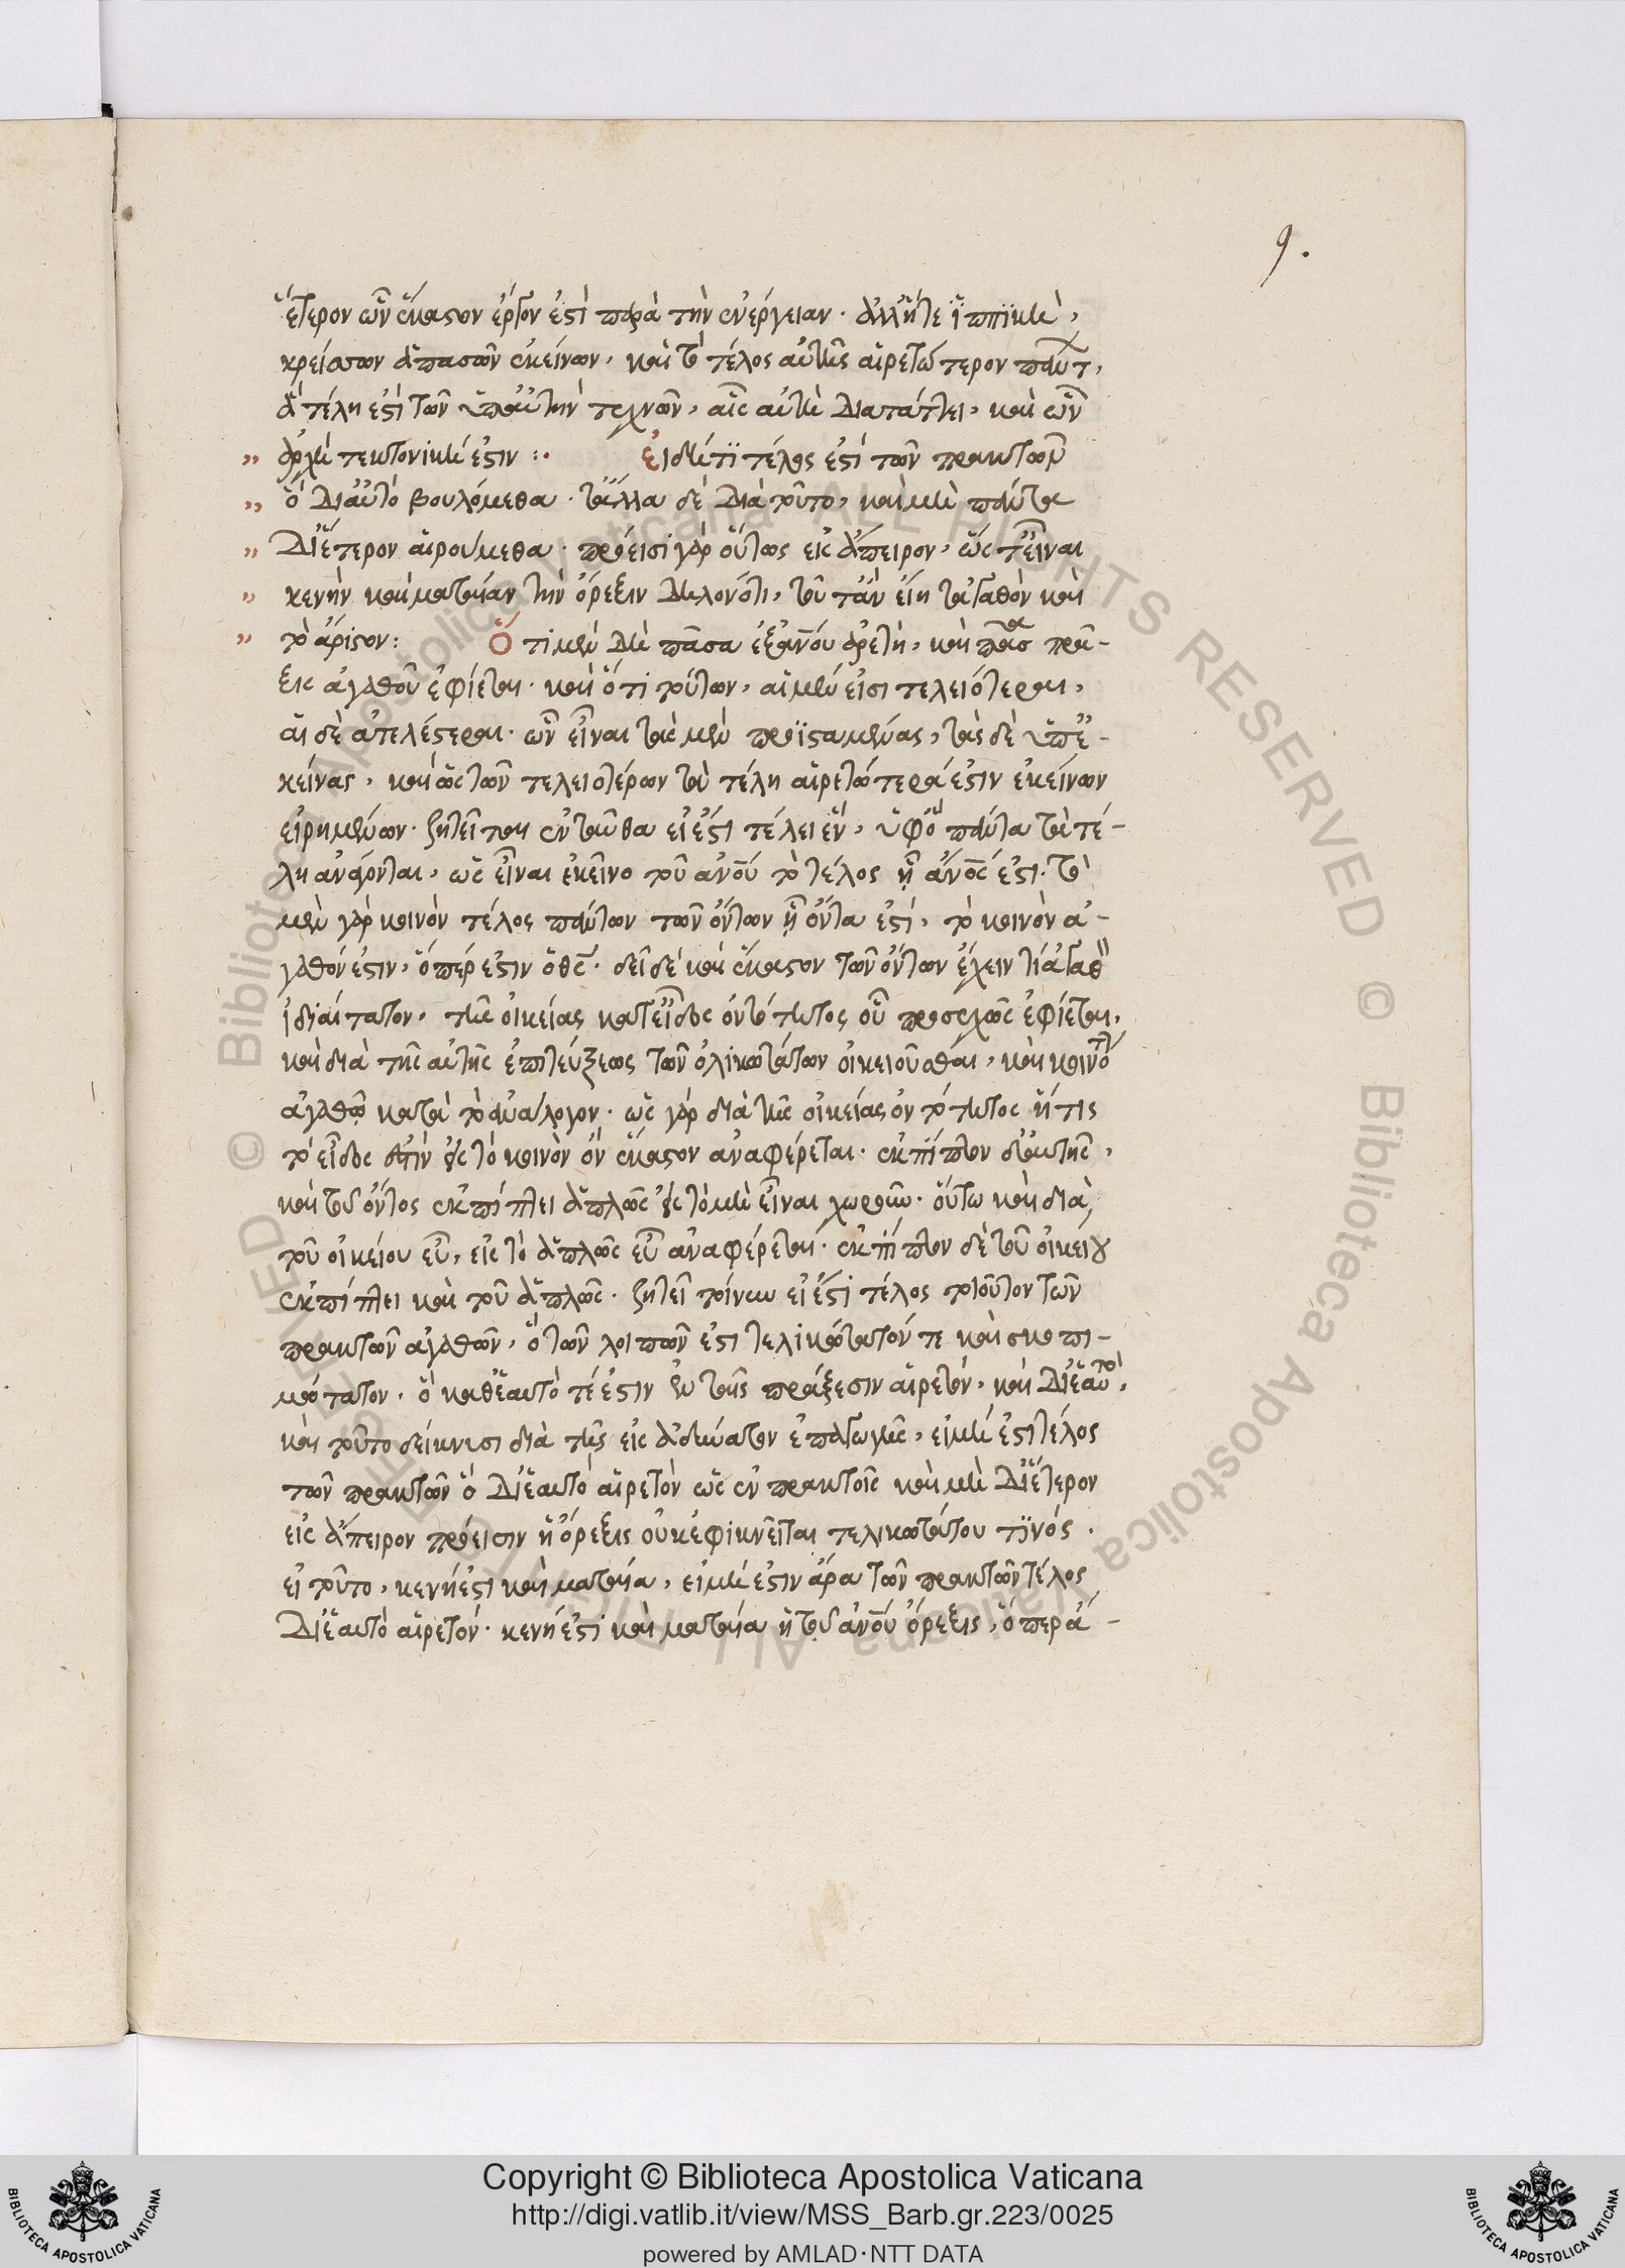 9.
ἕτερον ὧν ἕκαστον ἔργον ἐστὶ παρὰ τὴν ἐνέργειαν. ἀλλ' ἥ τε ἱππικὴ,
κρείσσων ἁπασῶν ἐκείνων, καὶ τὸ τέλος αὐτῆς αἱρετώτερον πάντ,
ἃ τέλη ἐστὶ τῶν ὑπ' αὐτὴν τεχνῶν, αἷς αὐτὴ διατάττει, καὶ ὧν
„ ἀρχιτεκτονική ἐστιν :. εἰ δή τι τέλος ἐστὶ τῶν πρακτῶν
„ ὃ δι' αὑτὸ βουλόμεθα. τἄλλα δὲ διὰ τοῦτο, καὶ μὴ πάντα
„ δι' ἕτερον αἱρούμεθα. πρόεισι γὰρ οὕτως εἰς ἄπειρον, ὥς τ' εἶναι
„ κενὴν καὶ ματαίαν τὴν ὄρεξιν δηλονότι, τοῦτ' ἂν εἴη τἀγαθὸν καὶ
„ τὸ ἄριστον: Ὅτι μὲν δὴ πᾶσα ἕξ ἀνου ἀρετὴ, καὶ πᾶσα πρᾶ-
ξις ἀγαθοῦ ἐφίεται. καὶ ὅτι τούτων, αἱ μὲν εἰσι τελειότεραι,
αἱ δὲ ἀτελέστεραι. ὧν εἶναι τὰς μὲν προϊσταμένας, τὰς δὲ ὑπ' ἐ-
κείνας, καὶ ὡς τῶν τελειοτέρων τὰ τέλη αἱρετώτερά ἐστιν ἐκείνων
εἰρημένων. ζητεῖται ἐνταῦθα εἰ ἔστι τέλει ἓν, ὑφ' ὃ πάντα τὰ τέ-
λη ἀνάγονται, ὡς εἶναι ἐκεῖνο τοῦ ἀνου τὸ τέλος ᾗ ἄνος ἐστι. τὸ
μὲν γὰρ κοινὸν τέλος πάντων τῶν ὄντων ᾗ ὄντα ἐστὶ, τὸ κοινὸν ἀ-
γαθόν ἐστιν, ὅπερ ἐστιν ὁ θς. δεῖ δὲ καὶ ἕκαστον τῶν ὄντων ἔχειν τι ἀγαθὸν
ἰδιαίτατον, τῆς οἰκείας κατ' εἶδος ὀντότητος οὗ προσεχῶς ἐφίεται,
καὶ διὰ τῆς αὐτῆς ἐπιτεύξεως τῶν ὁλικωτάτων οἰκειοῦσθαι, καὶ κοινοτ
ἀγαθῷ κατὰ τὸ ἀνάλογον. ὡς γὰρ διὰ τῆς οἰκείας ὀντότητος ἥτις
τὸ εἶδος ἐστὶν εἰς τὸ κοινὸν ὂν ἕκαστον ἀναφέρεται. ἐκπίπτον δ' αὐτῆς,
καὶ τοῦ ὄντος ἐκπίπτει ἁπλῶς εἰς τὸ μὴ εἶναι χωροῦν. οὕτω καὶ διὰ
τοῦ οἰκείου εὖ, εἰς τὸ ἁπλῶς εὖ ἀναφέρεται. ἐκπίπτον δὲ τοῦ οἰκείου
ἐκπίπτει καὶ τοῦ ἁπλῶς. ζητεῖ τοίνυν εἰ ἔστι τέλος τοιοῦτον τῶν
πρακτῶν ἀγαθῶν, ὃ τῶν λοιπῶν ἐστι τελικώτατόν τε καὶ σκοπι-
μώτατον. ὃ καθ' ἑαυτὸ τέ ἐστιν ἐν ταῖς πράξεσιν αἱρετὸν, καὶ δι' ἑαυτὸ,
καὶ τοῦτο δείκνυσι διὰ τῆς εἰς ἀδύνατον ἐπαγωγῆς, εἰ μή ἐστι τέλος
τῶν πρακτῶν ὃ δι' ἑαυτὸ αἱρετὸν ὡς ἐν πρακτοῖς καὶ μὴ δι' ἕτερον
εἰς ἄπειρον πρόεισιν ἡ ὄρεξις οὐκ ἐφικνεῖται τελικωτάτου τινός.
εἰ τοῦτο, κενή ἐστι καὶ ματαία, εἰ μή ἐστιν ἄρα τῶν πρακτῶν τέλος
δι' ἑαυτὸ αἱρετόν. κενή ἐστι καὶ ματαία ἡ τοῦ ἀνου ὄρεξις, ὅπερ ἀ-
Copyright © Biblioteca Apostolica Vaticana
http://digi.vatlib.it/view/MSS_Barb.gr.223/0025
powered by AMLAD·NTT DATA